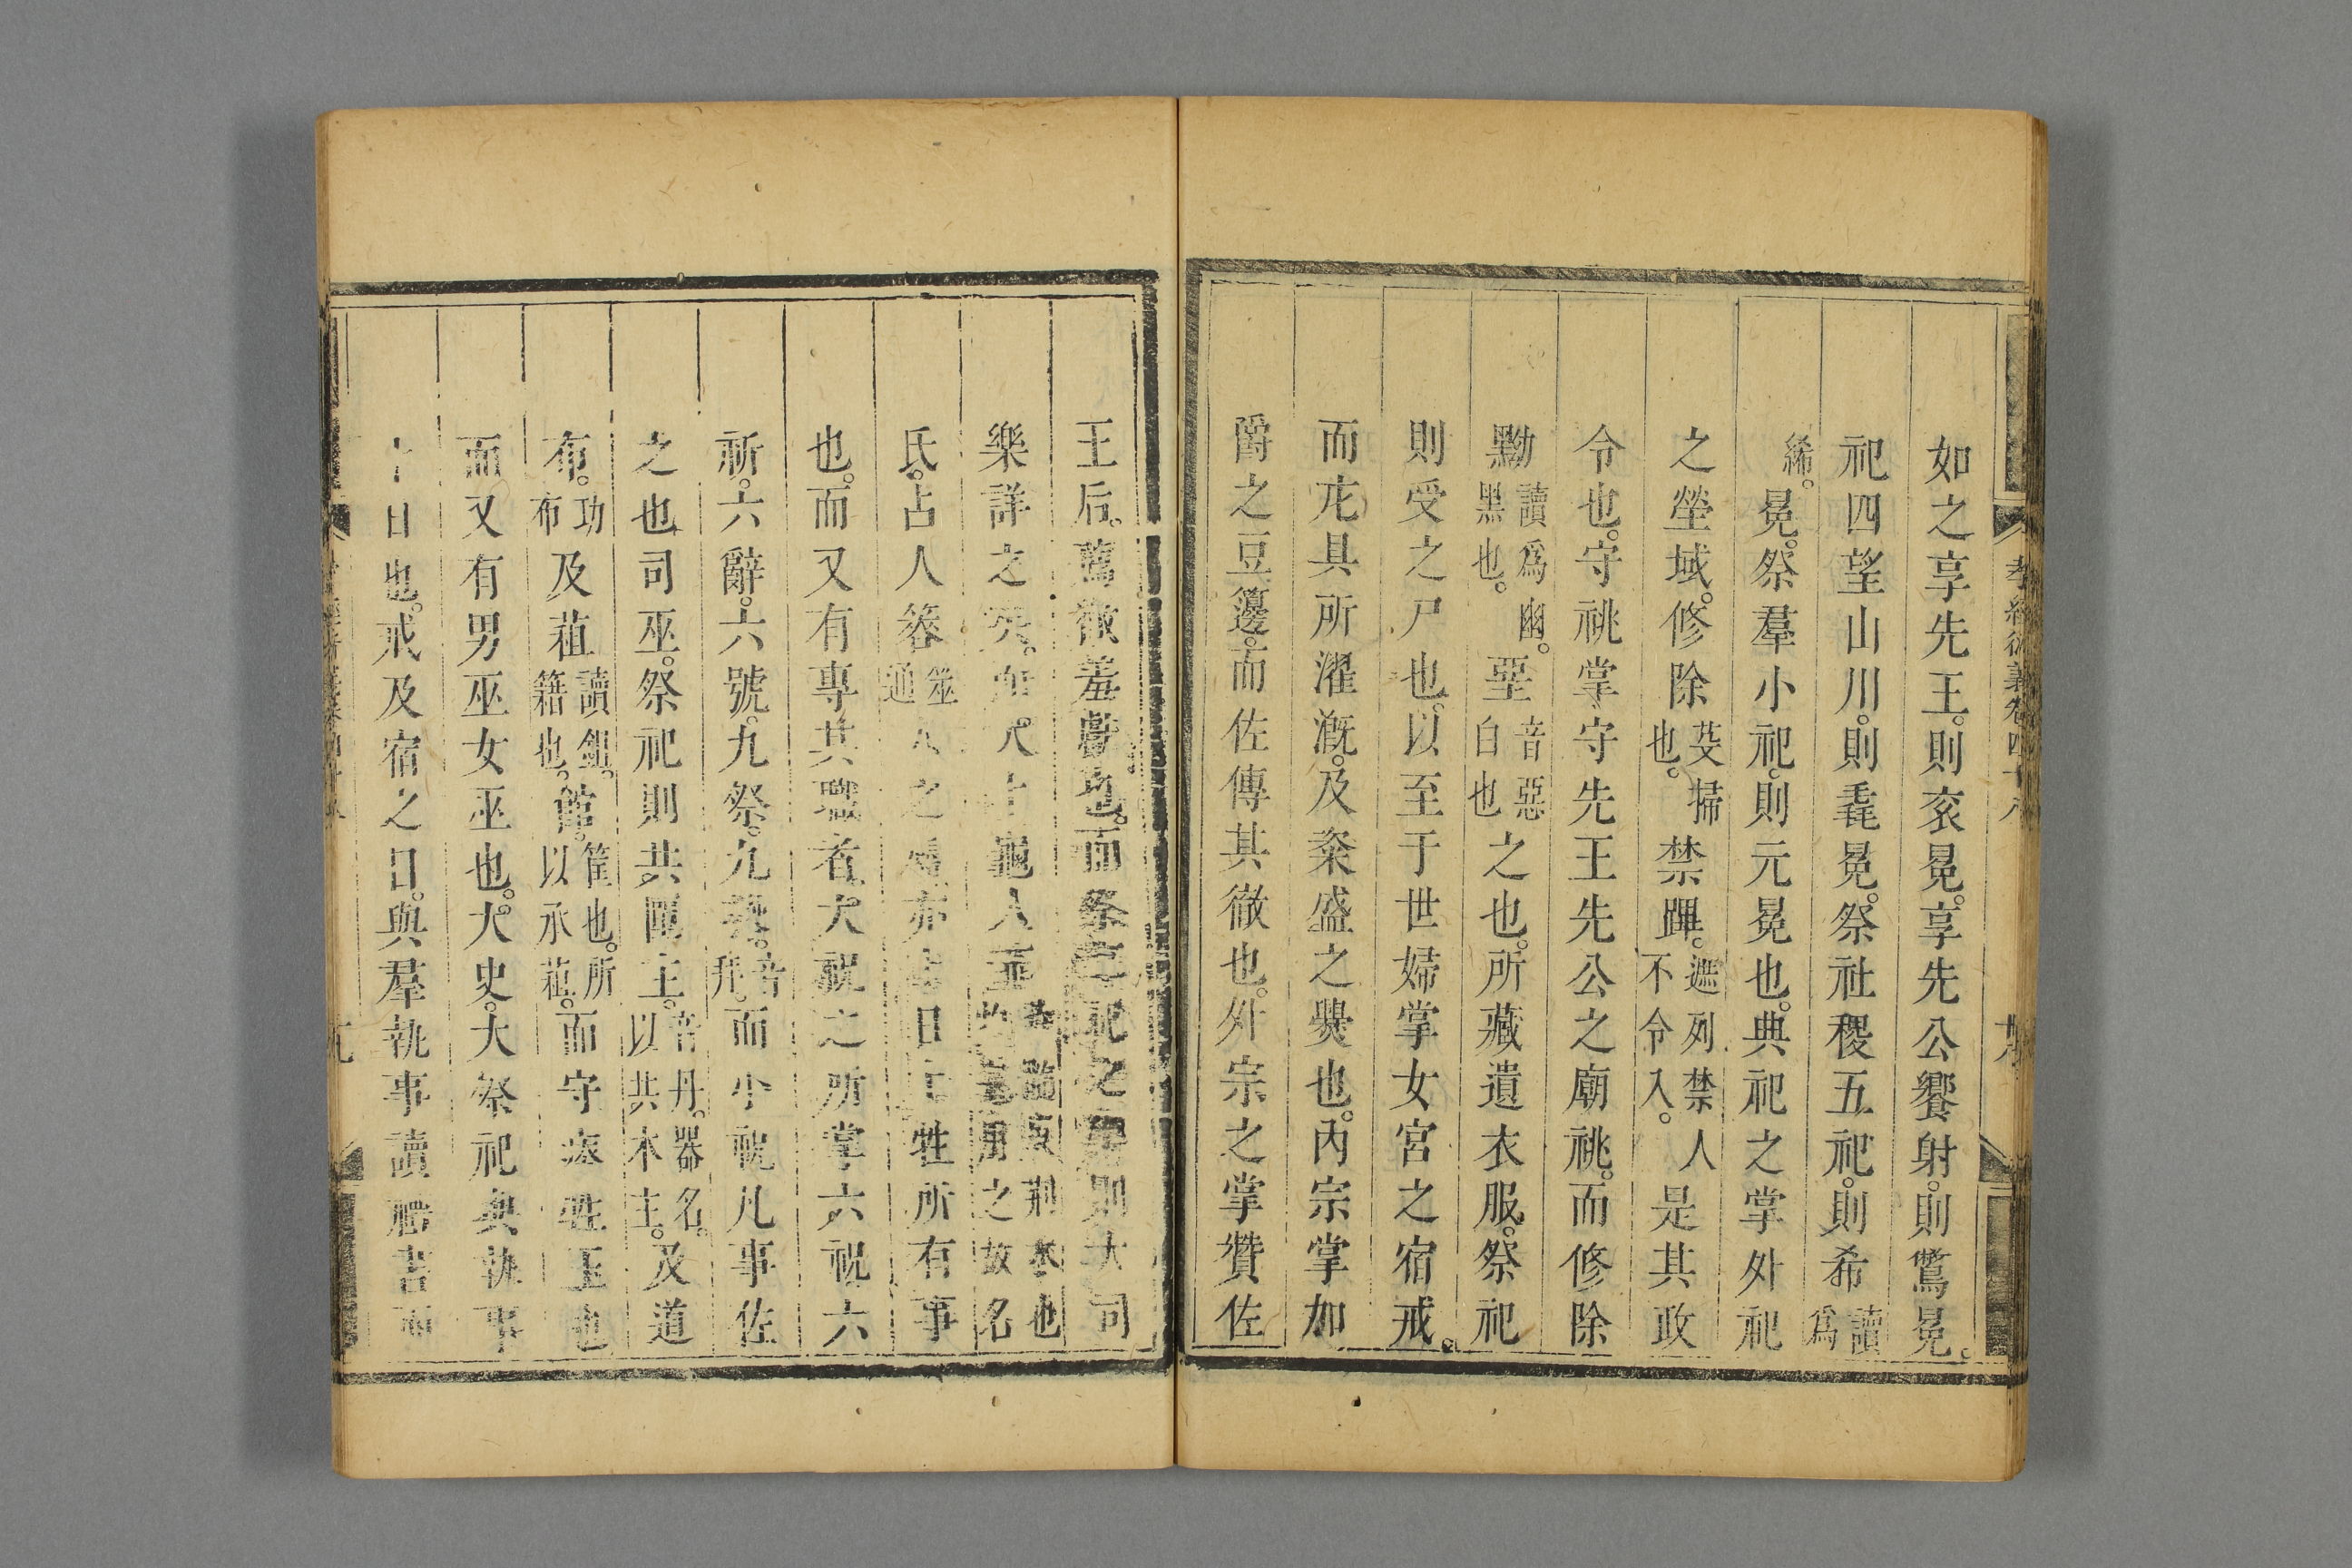 孝經衍義卷四十八
如之享先王。則衮冕。享先公饗射。則鷩冕。
祀四望山川。則毳冕。祭社稷五祀。則希讀爲
絺。冕。祭羣小祀。則元冕也。典祀之掌外祀
之塋域。修除芟掃也。禁蹕。遮列禁人不令入。是其政
令也。守祧掌守先王先公之廟祧。而修除
黝讀爲幽。黑也。堊音惡白也之也。所藏遺衣服。祭祀
則受之尸也。以至于世婦掌女宮之宿戒。
而庀具所濯漑。及粢盛之爨也。內宗掌加
爵之豆籩。而佐傳其徹也。外宗之掌贊佐
王后。薦徹羞獻也。而祭祀之樂則大司
樂詳之矣。卜龜人菙之故名
氏。占人簭筮通人之屬亦日牲所有事
也。而又有專其職者。大祝之所掌六祝六
祈。六辭。六號。九祭。九音拜。而小祝凡事佐
之也司巫。祭祀則共匰主。音丹。器名。以共木主。及道
布。功布及蒩讀鉏。籍也。館。筐也。所以承蒩。而守瘞牲玉也
而又有男巫女巫也。大史。大祭祀與執事
卜日也。戒及宿之日。與羣執事讀禮書而